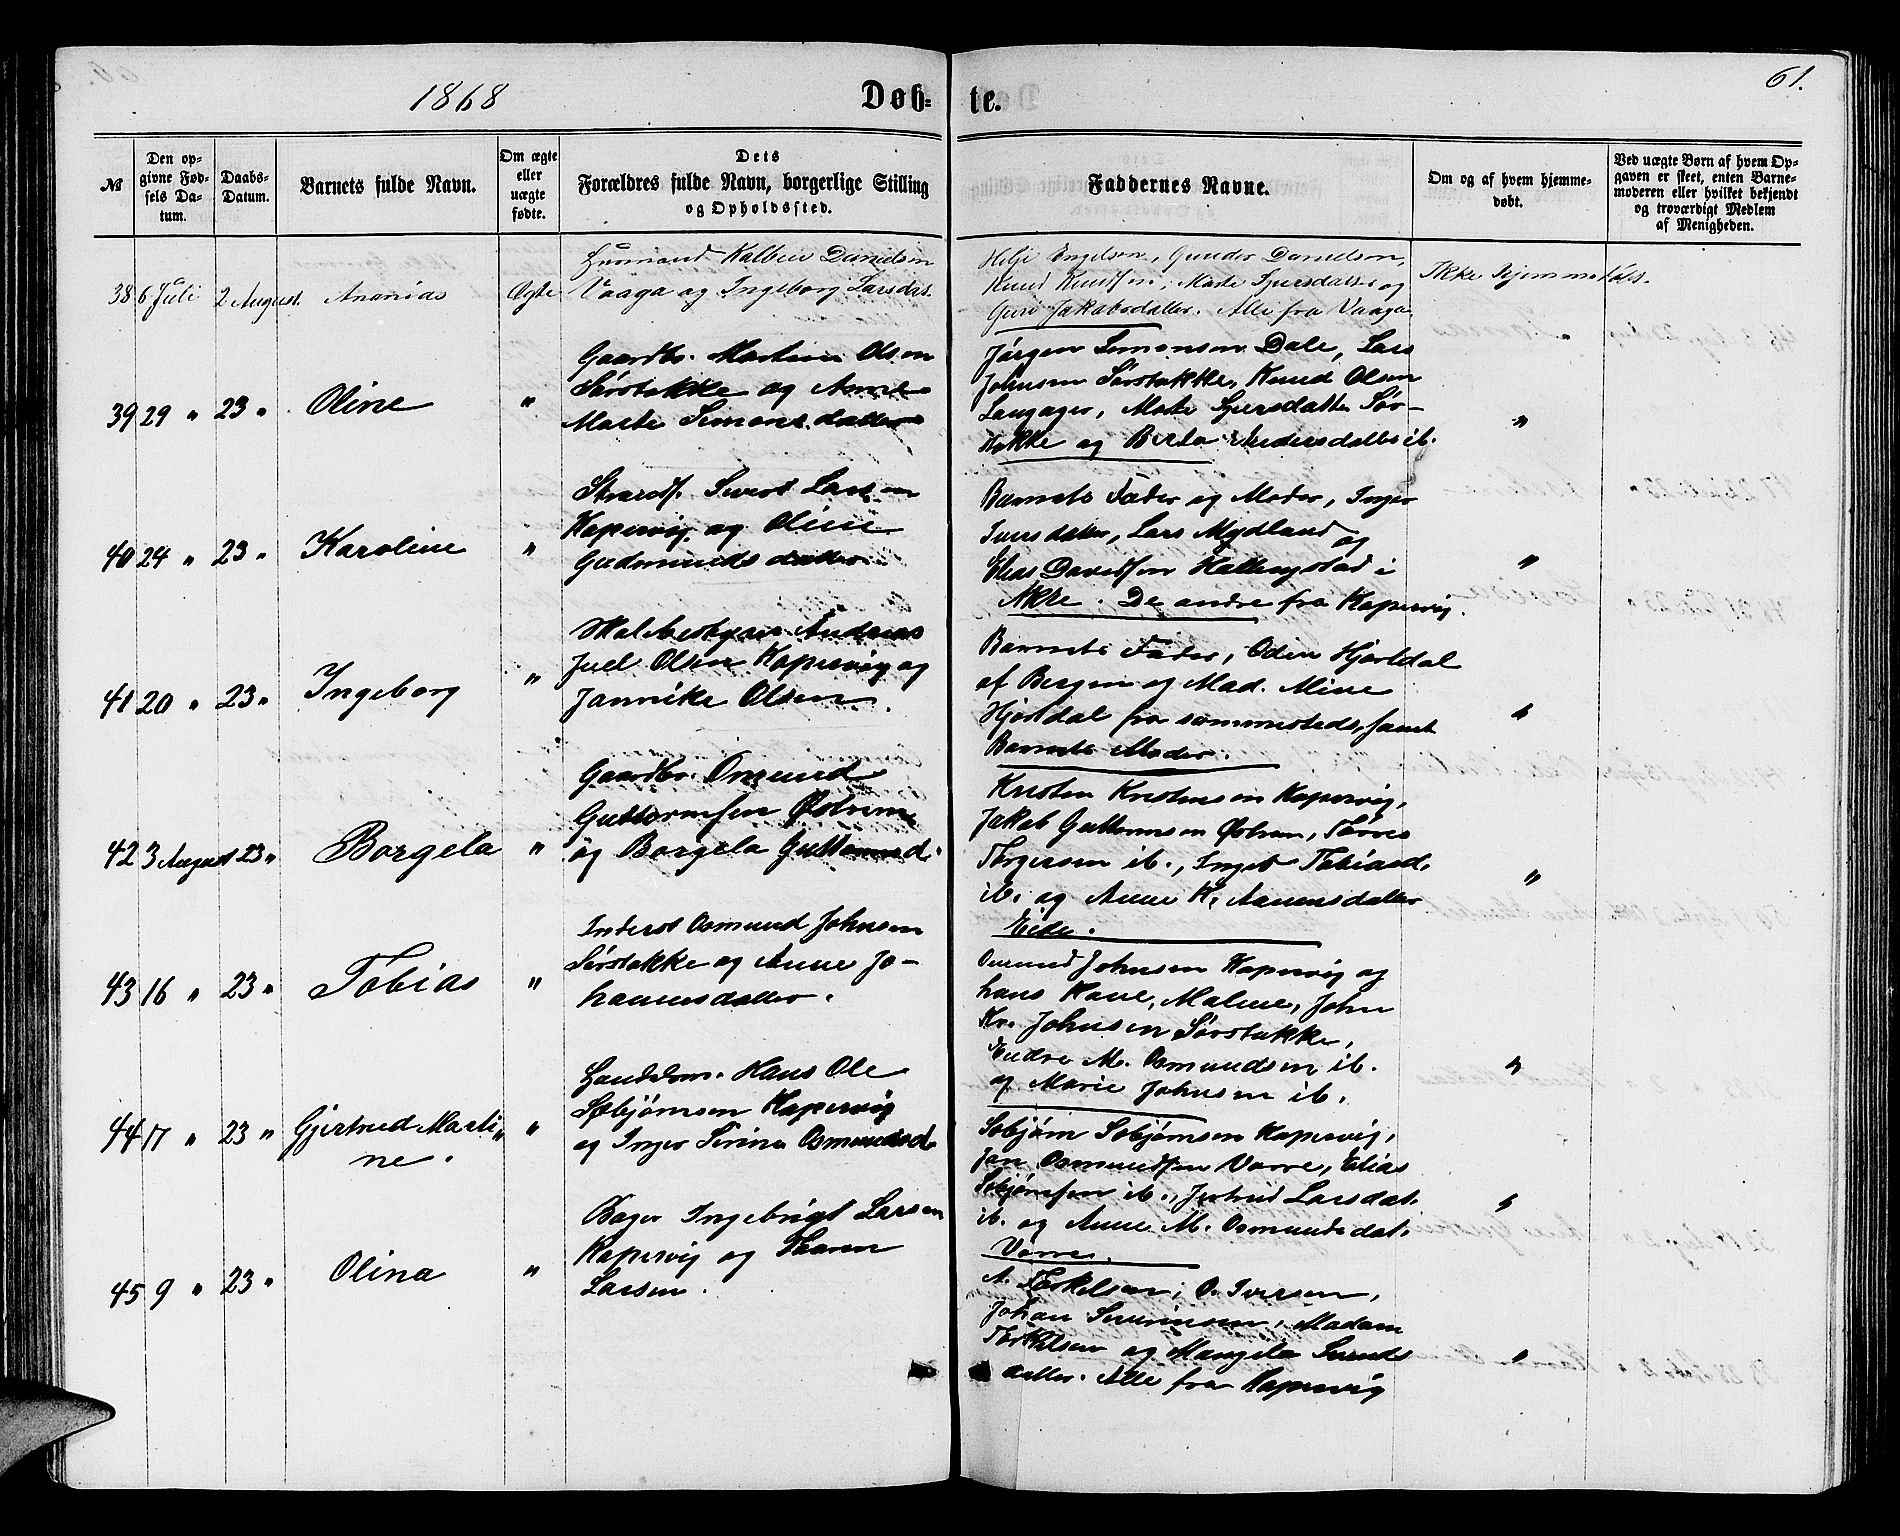 1868
Døb-
te.
61.
№
Den op-
givne Fød-
sels Da-
tum.
Daabs-
Datum.
Barnets fulde Navn.
Om ægte
eller
uægte
fødte.
Dets
Forældres fulde Navn, borgerlige Stilling
og Opholdssted.
Faddernes Navne.
Om og af hvem hjemme-
døbt.
Ved uægte Børn af hvem Op-
gaven er skeet, enten Barne-
moderen eller hvilket bekjendt
og troværdigt Medlem
af Menigheden.
38 6 Juli 2 August. Ananias Ægte
Huusmand Kolbein Danielsen
Vaaga og Ingeborg Larsdat.
Helje Engelsen, Gunder Danielsen,
Knud Knudsen, Marte Sjursdatter og
Guri Jakobsdatter. Alle fra Vaaga.
Ikke hjemmedøbt.
39 29 " 23 " Oline "
Gaardbr. Martin Olsen
Sørstokke og Anne
Marte Simonsdatter
Jørgen Simonsen Dale, Lars
Johnsen Sørstokke, Knud Olsen
Langager, Marte Sjursdatter Sør-
stokke og Berta Andersdatter ib.
"
40 24 " 23 " Karoline "
Strandf. Sivert Larsen
Kopervig og Oline
Gudmundsdatter
Barnets Fader og Moder, Inger
Iversdatter, Lars Mydland og
Elias Davidsen Hallingstad i
Akre. De andre fra Kopervig.
"
41 20 " 23 " Ingeborg "
Skolebestyrer Andreas
Juel Olsen Kopervig og
Jannike Olsen.
Barnets Fader, Odin Hjortdal
af Bergen og Mad. Mine
Hjortdal fra sammesteds, samt
Barnets Moder.
"
42 3 August 23 " Borgela "
Gaardbr. Osmund
Guttormsen Østrem
og Borgela Guttormsd.
Kristen Kristensen Kopervig,
Jakob Guttormsen Østrem, Torres
Torgersen ib., Inger Tobiasd.
ib. og Anne K. Aanensdatter
Eide.
"
43 16 " 23 " Tobias "
Inderst Osmund Johnsen
Sørstokke og Anne Jo-
hannesdatter.
Osmund Johnsen Kopervig og
hans Kone, Malene, John
Kr. Johnsen Sørstokke,
Endre M. Osmundsen ib.
og Marie Johnsen ib.
"
44 17 " 23 " Gjertrud Marti-
ne. "
Hans Ole
Sebjørnsen Kopervig
og Inger Serina Osmundsd.
Sebjørn Sebjørnsen Kopervig,
Jan Osmundsen Vorre, Elias
Sebjørnsen ib., Jertrud Larsdat.
ib. og Anne M. Osmundsdat.
Vorre.
"
45 9 " 23 " Olina "
Bager Ingebrigt Larsen
Kopervig og Maren
Larsen.
A. Torkelsen, O. Iversen,
Johan Severinsen, Madam
Torkelsen og Mangela Svends
datter. Alle fra Kopervig
"